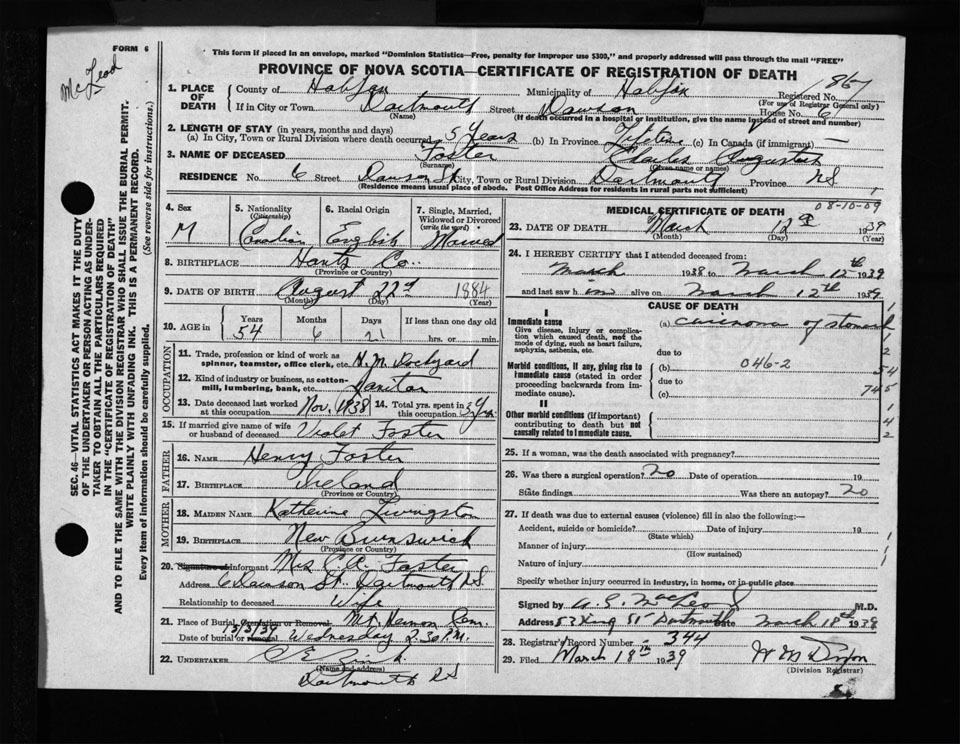 FORM 6
McLeod
This form if placed in an envelope, marked "Dominion Statistics—Free, penalty for improper use $300," and properly addressed will pass through the mail "FREE"
PROVINCE OF NOVA SCOTIA—CERTIFICATE OF REGISTRATION OF DEATH
867
1. PLACE OF DEATH County of Halifax Municipality of Halifax Registered No.
(For use of Registrar General only)
If in City or Town Dartmouth Street Dawson House No. 6
(Name) (If death occurred in a hospital or institution, give the name instead of street and number)
2. LENGTH OF STAY (in years, months and days)
(a) In City, Town or Rural Division where death occurred 5 Years (b) In Province Lifetime (c) In Canada (if immigrant) —
3. NAME OF DECEASED Foster Charles Augustus
(Surname) (Given name or names)
RESIDENCE No. 6 Street Dawson St City, Town or Rural Division Dartmouth Province NS
(Residence means usual place of abode. Post Office Address for residents in rural parts not sufficient)
SEC. 46—VITAL STATISTICS ACT MAKES IT THE DUTY
OF THE UNDERTAKER OR PERSON ACTING AS UNDER-
TAKER TO OBTAIN ALL THE PARTICULARS REQUIRED
IN THE "CERTIFICATE OF REGISTRATION OF DEATH"
AND TO FILE THE SAME WITH THE DIVISION REGISTRAR WHO SHALL ISSUE THE BURIAL PERMIT.
WRITE PLAINLY WITH UNFADING INK. THIS IS A PERMANENT RECORD.
Every item of information should be carefully supplied. (See reverse side for instructions.)
4. Sex M
5. Nationality (Citizenship) Canadian
6. Racial Origin English
7. Single, Married, Widowed or Divorced (write the word) Married
8. BIRTHPLACE Hants Co.
(Province or Country)
9. DATE OF BIRTH August 22d 1884
(Month) (Day) (Year)
10. AGE in Years Months Days If less than one day
54 6 21 hrs. or min.
OCCUPATION
11. Trade, profession or kind of work as spinner, teamster, office clerk, etc. H.M. Dockyard
12. Kind of industry or business, as cotton-mill, lumbering, bank, etc. Janitor
13. Date deceased last worked at this occupation Nov. 1938 14. Total yrs. spent in this occupation 3 Yrs.
15. If married give name of wife or husband of deceased Violet Foster
FATHER
16. NAME Henry Foster
17. BIRTHPLACE Ireland
(Province or Country)
MOTHER
18. MAIDEN NAME Katherine Livingston
19. BIRTHPLACE New Brunswick
(Province or Country)
20. Signature of informant Mrs C.A. Foster
Address 6 Dawson St. Dartmouth N.S.
Relationship to deceased Wife
21. Place of Burial, Cremation or Removal Mt. Hermon Cem.
15/3/39
Date of burial or removal Wednesday 2.30 P.M.
22. UNDERTAKER C E Zink
(Name and address)
Dartmouth NS
08-10-09
MEDICAL CERTIFICATE OF DEATH
23. DATE OF DEATH March 12th 1939
(Month) (Day) (Year)
24. I HEREBY CERTIFY that I attended deceased from:
March 1938 to March 12th 1939
and last saw him alive on March 12th 1939
CAUSE OF DEATH
I
Immediate cause (a) carcinoma of stomach
Give disease, injury or complication which caused death, not the mode of dying, such as heart failure, asphyxia, asthenia, etc.
due to
Morbid conditions, if any, giving rise to immediate cause (stated in order proceeding backwards from immediate cause). (b) 046-2
due to
(c)
II
Other morbid conditions (if important) contributing to death but not causally related to immediate cause.
25. If a woman, was the death associated with pregnancy?
26. Was there a surgical operation? no Date of operation 19
State findings Was there an autopsy? no
27. If death was due to external causes (violence) fill in also the following:—
Accident, suicide or homicide? Date of injury 19
(State which)
Manner of injury
(How sustained)
Nature of injury
Specify whether injury occurred in industry, in home, or in public place
Signed by M.D.
Address 53 King St Dartmouth Date March 18th 1939
28. Registrar's Record Number 344
29. Filed March 18th 1939 W M Dixon
(Division Registrar)